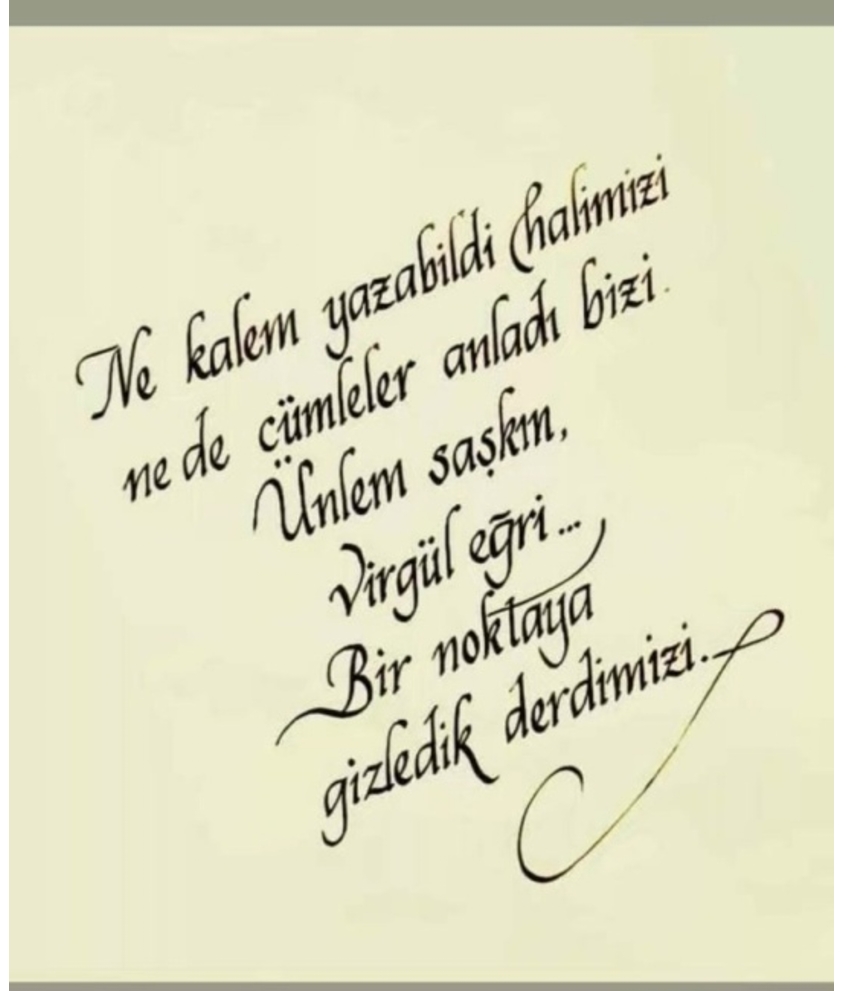 Ne kalem yazabildi halimizi
ne de cümleler anladı bizi.
Ünlem şaşkın,
virgül eğri...
Bir noktaya
gizledik derdimizi.